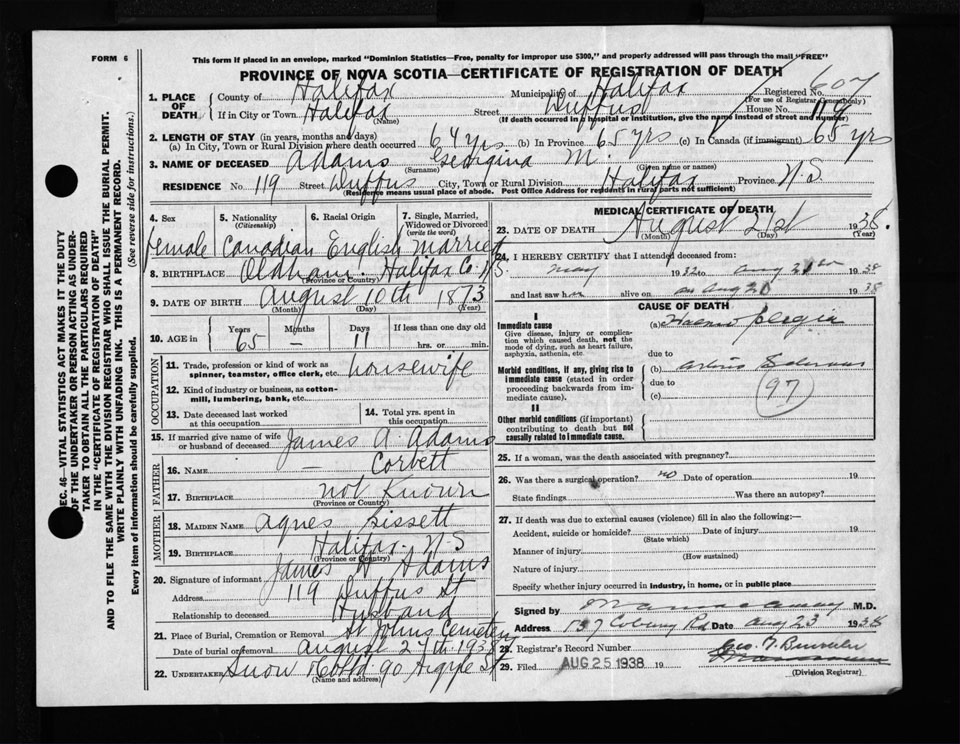 FORM 6
This form if placed in an envelope, marked "Dominion Statistics—Free, penalty for improper use $300," and properly addressed will pass through the mail "FREE"
PROVINCE OF NOVA SCOTIA—CERTIFICATE OF REGISTRATION OF DEATH
Registered No. 607
(For use of Registrar General only)
1. PLACE OF DEATH
County of Halifax Municipality of Halifax
If in City or Town Halifax Street Duffus House No. 119
(Name) (If death occurred in a hospital or institution, give the name instead of street and number)
2. LENGTH OF STAY (in years, months and days)
(a) In City, Town or Rural Division where death occurred 64 yrs (b) In Province 65 yrs (c) In Canada (if immigrant) 65 yrs
3. NAME OF DECEASED Adams Georgina M.
(Surname) (Given name or names)
RESIDENCE No. 119 Street Duffus City, Town or Rural Division Halifax Province N.S.
(Residence means usual place of abode. Post Office Address for residents in rural parts not sufficient)
4. Sex
female
5. Nationality
(Citizenship)
Canadian
6. Racial Origin
English
7. Single, Married, Widowed or Divorced
(write the word)
Married
8. BIRTHPLACE Oldham. Halifax Co. N.S.
(Province or Country)
9. DATE OF BIRTH August 10th 1873
(Month) (Day) (Year)
10. AGE in
Years Months Days If less than one day old
65 — 11 hrs. or min.
OCCUPATION
11. Trade, profession or kind of work as spinner, teamster, office clerk, etc. housewife
12. Kind of industry or business, as cotton-mill, lumbering, bank, etc.
13. Date deceased last worked at this occupation
14. Total yrs. spent in this occupation
15. If married give name of wife or husband of deceased James A. Adams
FATHER
16. NAME — Corbett
17. BIRTHPLACE not Known
(Province or Country)
MOTHER
18. MAIDEN NAME Agnes Bissett
19. BIRTHPLACE Halifax. N.S
(Province or Country)
20. Signature of informant James Adams
Address 119 Duffus St
Relationship to deceased Husband
21. Place of Burial, Cremation or Removal St Johns Cemetery
Date of burial or removal August 27th 1938
22. UNDERTAKER Snow & Co Ltd 90 Argyle St
(Name and address)
MEDICAL CERTIFICATE OF DEATH
23. DATE OF DEATH August 21st 1938.
(Month) (Day) (Year)
24. I HEREBY CERTIFY that I attended deceased from:
May 1932 to Aug 21 1938
and last saw her alive on Aug 20 1938
CAUSE OF DEATH
I
Immediate cause
Give disease, injury or complication which caused death, not the mode of dying, such as heart failure, asphyxia, asthenia, etc.
(a)
due to
Morbid conditions, if any, giving rise to immediate cause (stated in order proceeding backwards from immediate cause).
(b)
due to
(c) (97)
II
Other morbid conditions (if important) contributing to death but not causally related to immediate cause.
25. If a woman, was the death associated with pregnancy?
26. Was there a surgical operation? no Date of operation 19
State findings Was there an autopsy?
27. If death was due to external causes (violence) fill in also the following:—
Accident, suicide or homicide? Date of injury 19
(State which)
Manner of injury
(How sustained)
Nature of injury
Specify whether injury occurred in industry, in home, or in public place
Signed by M.D.
Address 137 Coburg Rd Date Aug 23 1938
28. Registrar's Record Number
29. Filed AUG 25 1938 19
(Division Registrar)
SEC. 46—VITAL STATISTICS ACT MAKES IT THE DUTY
OF THE UNDERTAKER OR PERSON ACTING AS UNDERTAKER
TO OBTAIN ALL THE PARTICULARS REQUIRED
IN THE "CERTIFICATE OF REGISTRATION OF DEATH"
AND TO FILE THE SAME WITH THE DIVISION REGISTRAR WHO SHALL ISSUE THE BURIAL PERMIT.
WRITE PLAINLY WITH UNFADING INK. THIS IS A PERMANENT RECORD.
Every item of information should be carefully supplied.
(See reverse side for instructions.)